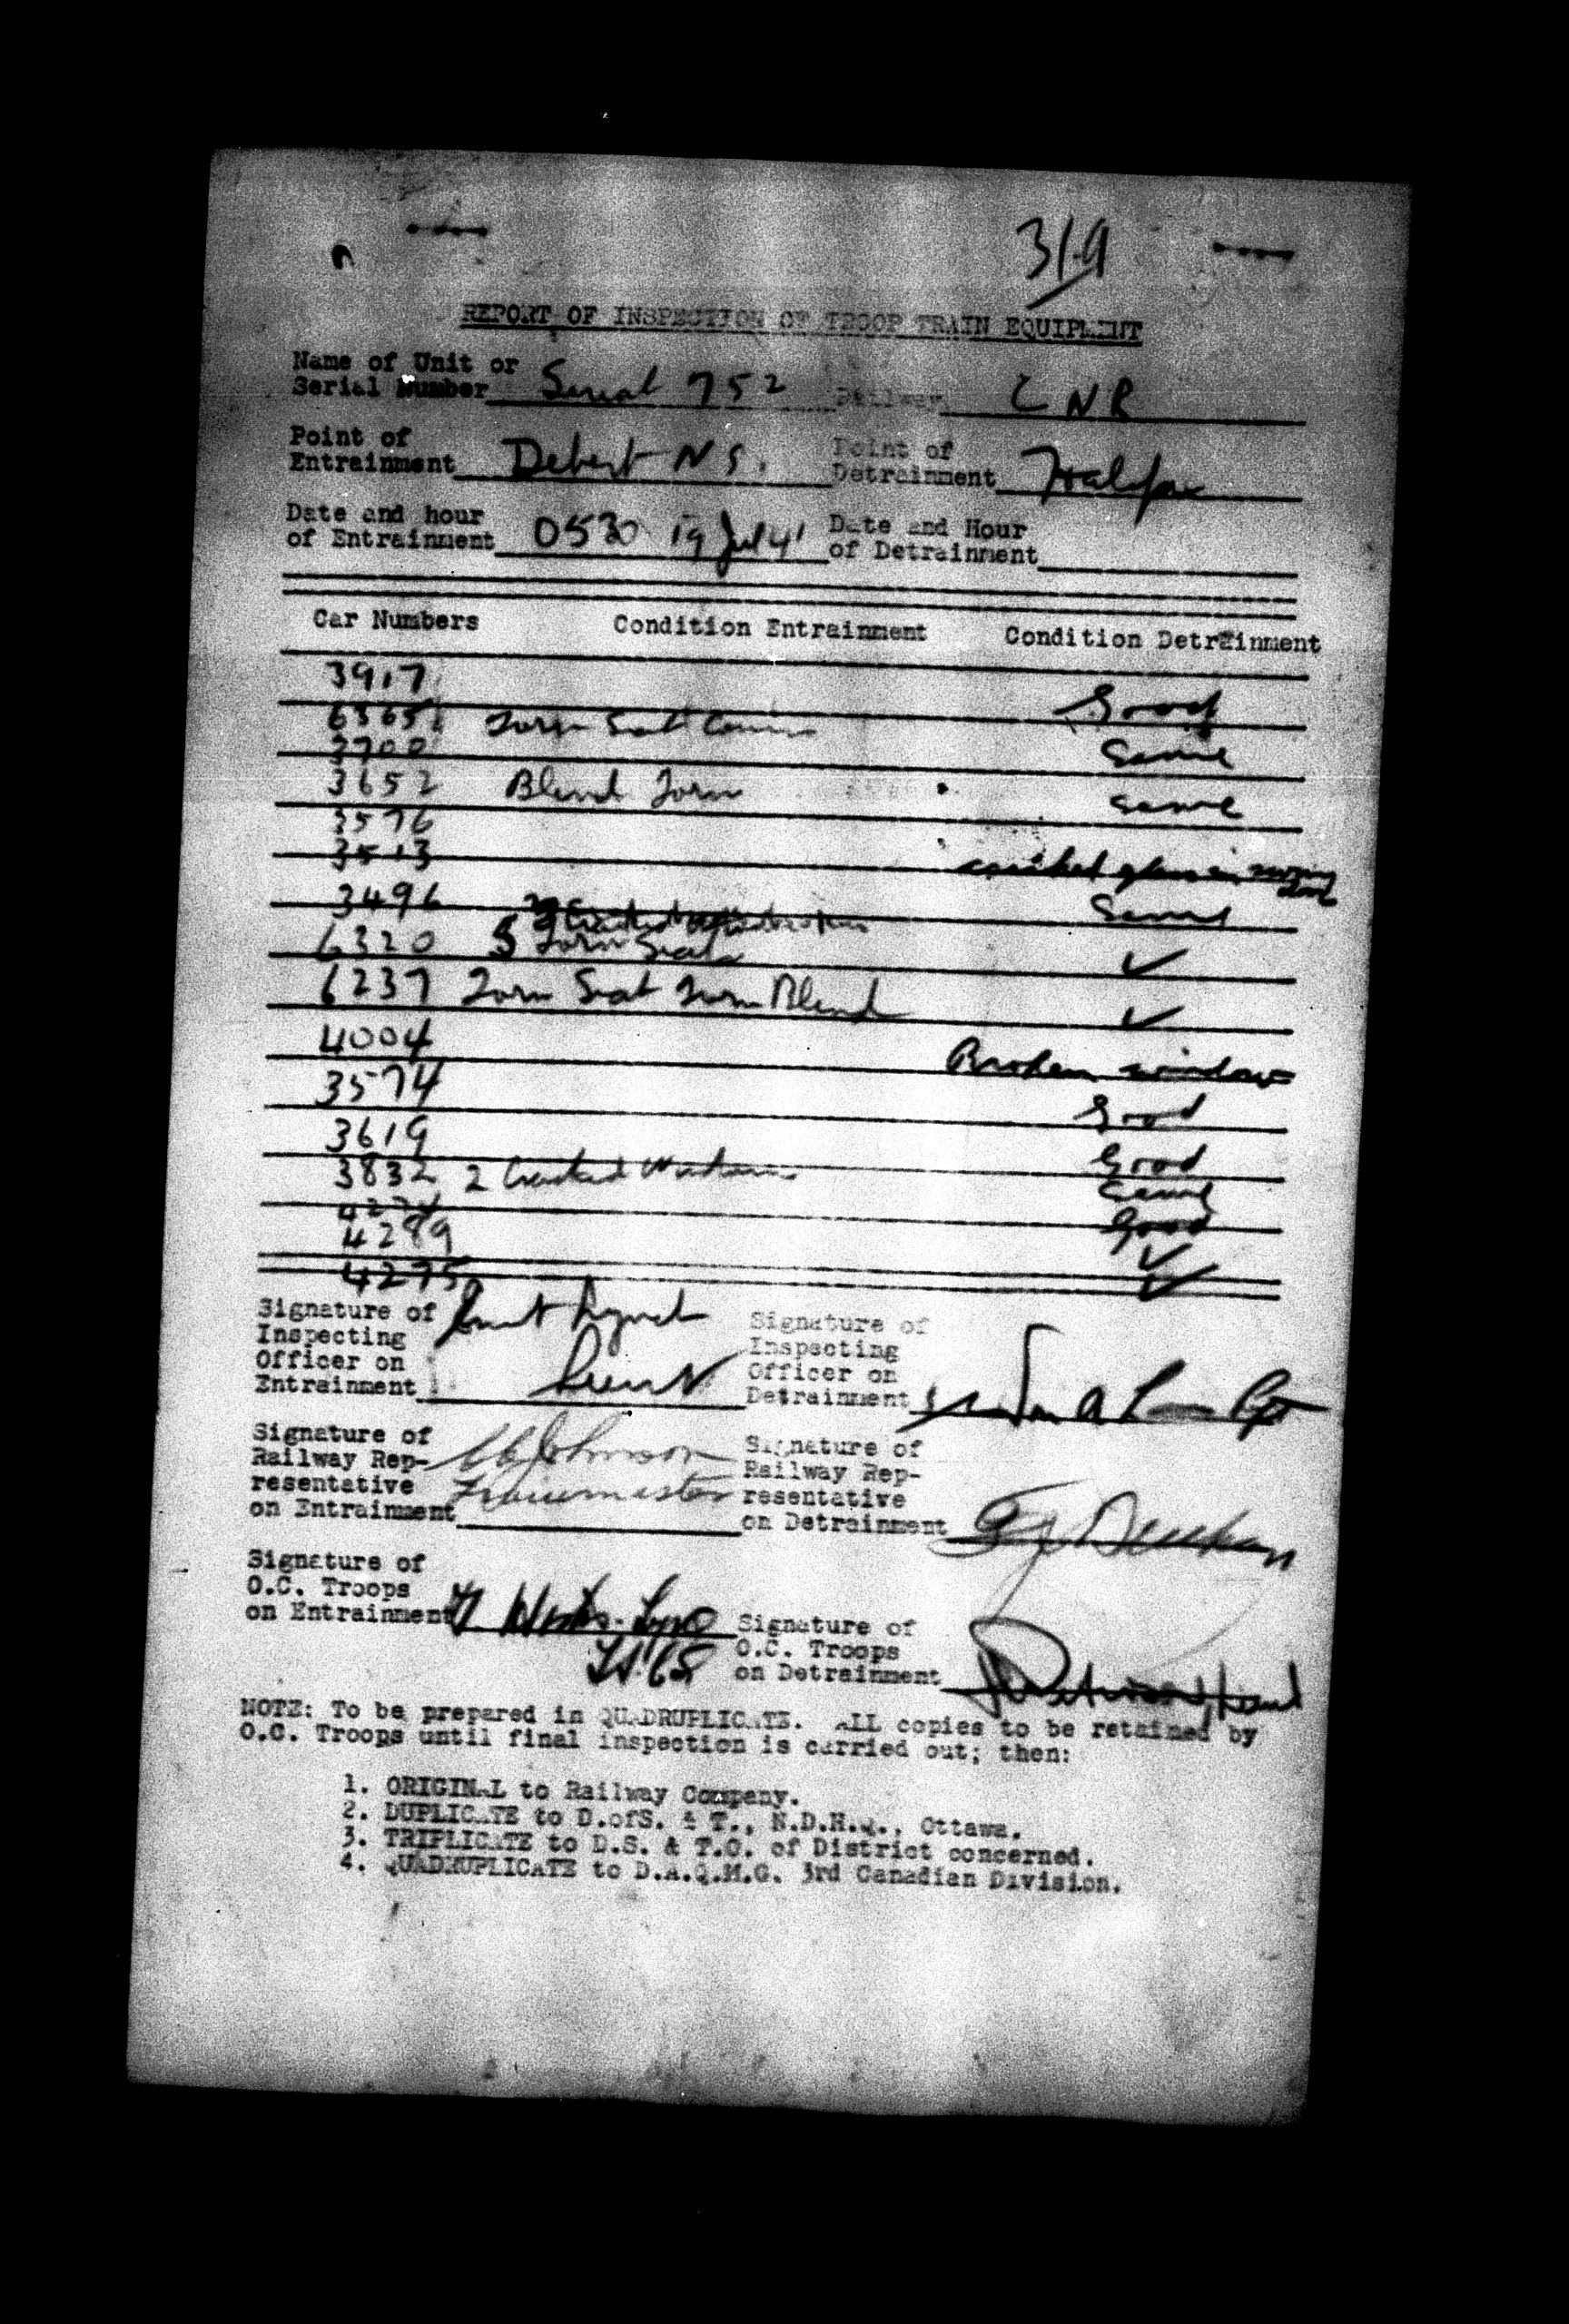 319
REPORT OF INSPECTION OF TROOP TRAIN EQUIPMENT
Name of Unit or
Serial Number Serial 752 Railway C N R
Point of Entrainment Debert N S. Point of Detrainment Halifax
Date and hour of Entrainment 0530 19 Jul 41 Date and Hour of Detrainment
Car Numbers Condition Entrainment Condition Detrainment
3917 Good
6365 Torn Seat Same
3700
3652 Blind Torn Same
3576
3513 cracked glass in
3496 Same
6320 5 Torn Seats ✓
6237 Torn Seat Torn Blind ✓
4004 Broken window
3574 Good
3619 Good
3832 2 Cracked Windows Same
Good
4289 ✓
4275 ✓
Signature of Inspecting Officer on Entrainment Lieut
Signature of Inspecting Officer on Detrainment
Signature of Railway Representative on Entrainment Johnson Trainmaster
Signature of Railway Representative on Detrainment
Signature of O.C. Troops on Entrainment
Signature of O.C. Troops on Detrainment
NOTE: To be prepared in QUADRUPLICATE. ALL copies to be retained by
O.C. Troops until final inspection is carried out; then:
1. ORIGINAL to Railway Company.
2. DUPLICATE to D.ofS. & T., N.D.H.Q., Ottawa.
3. TRIPLICATE to D.S. & T.O. of District concerned.
4. QUADRUPLICATE to D.A.Q.M.G. 3rd Canadian Division.